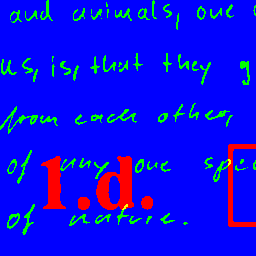 and animals, one
us, is, that they g
from each other,
of any one spec
1.d.
of nature.